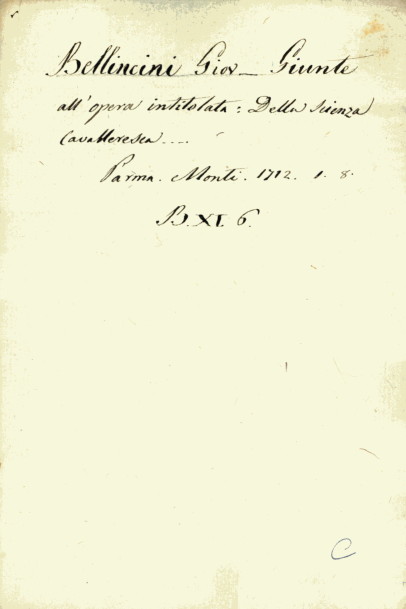 Bellincini Giov_ Giunte
all'opera intitolata: Della scienza
Cavalleresca....
Parma. Monti. 1712. 1. 8.
B. XI. 6.
C